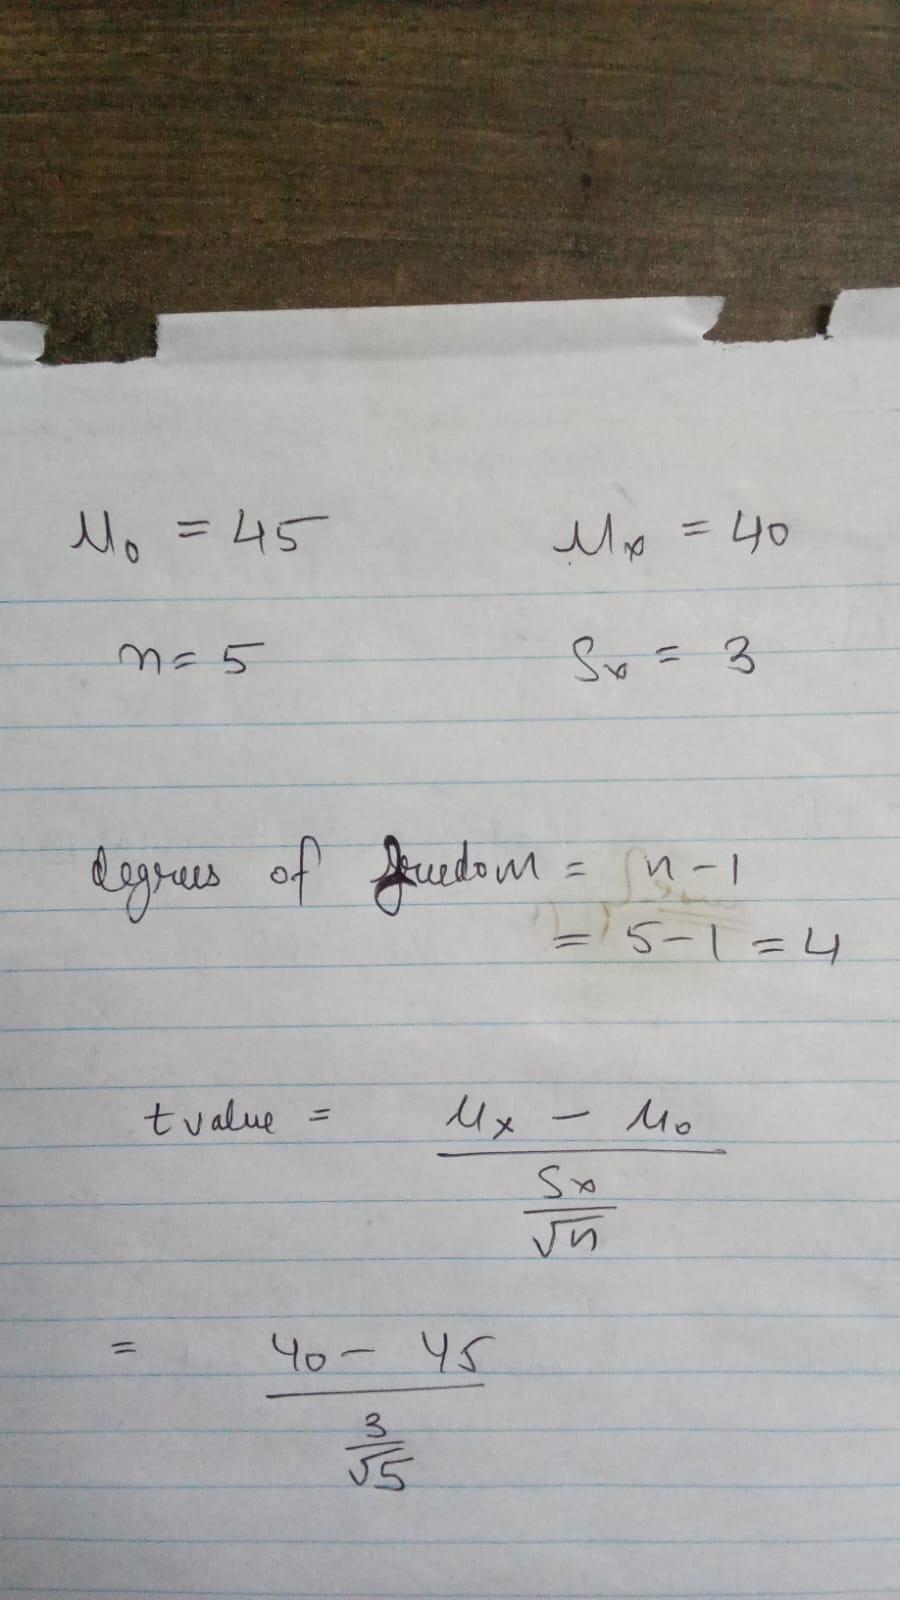 μ₀ = 45 μₓ = 40
n = 5 Sₓ = 3
degrees of freedom = n - 1
= 5 - 1 = 4
t value = μₓ - μ₀
Sₓ
√n
= 40 - 45
3
√5